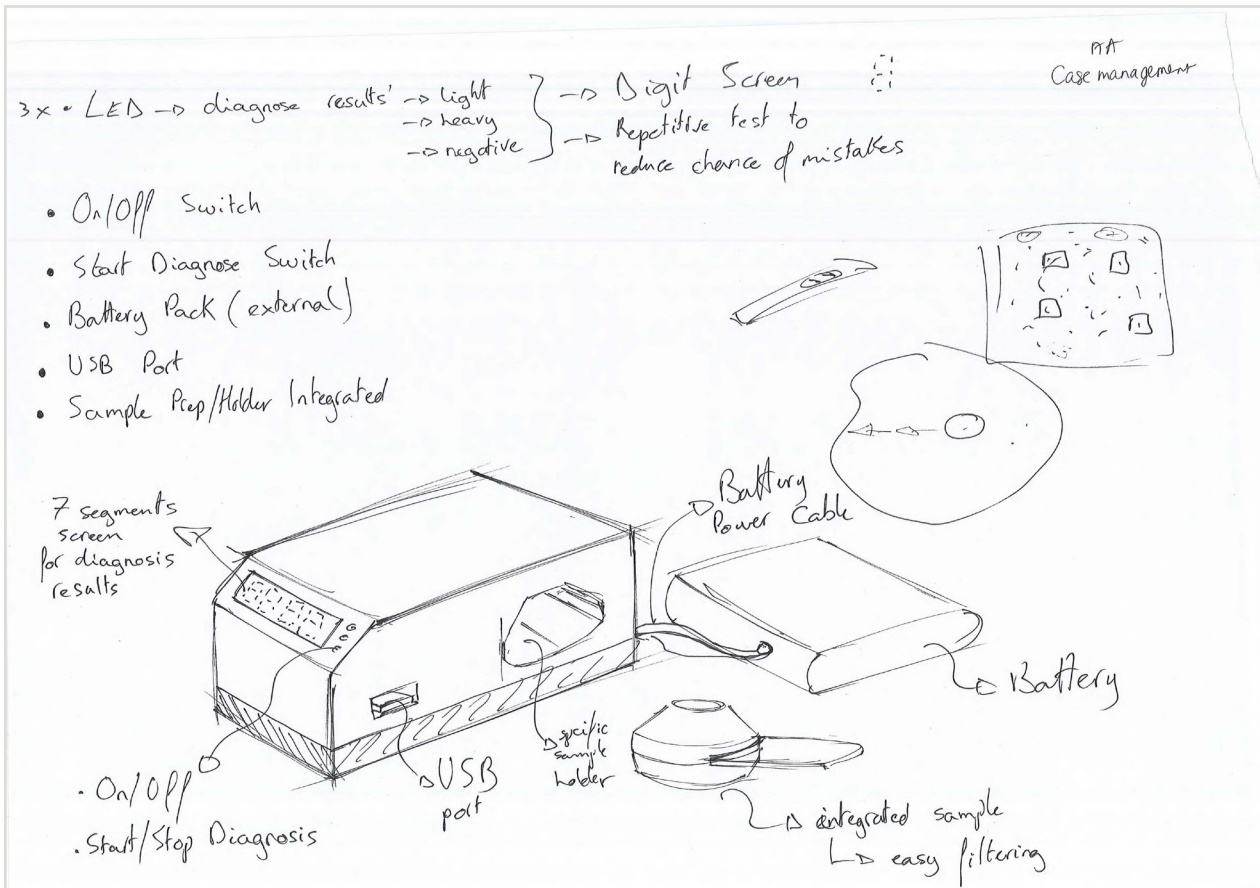 AA
Case management
3x • LED → diagnose results' → light
→ heavy
→ negative
→ Digit Screen
→ Repetitive test to
reduce chance of mistakes
• On/Off Switch
• Start Diagnose Switch
• Battery Pack (external)
• USB Port
• Sample Prep/Holder Integrated
7 segments
screen
for diagnosis
results
Battery
Power Cable
Battery
specific
sample
holder
USB
port
• On/Off
• Start/Stop Diagnosis
integrated sample
↳ easy filtering